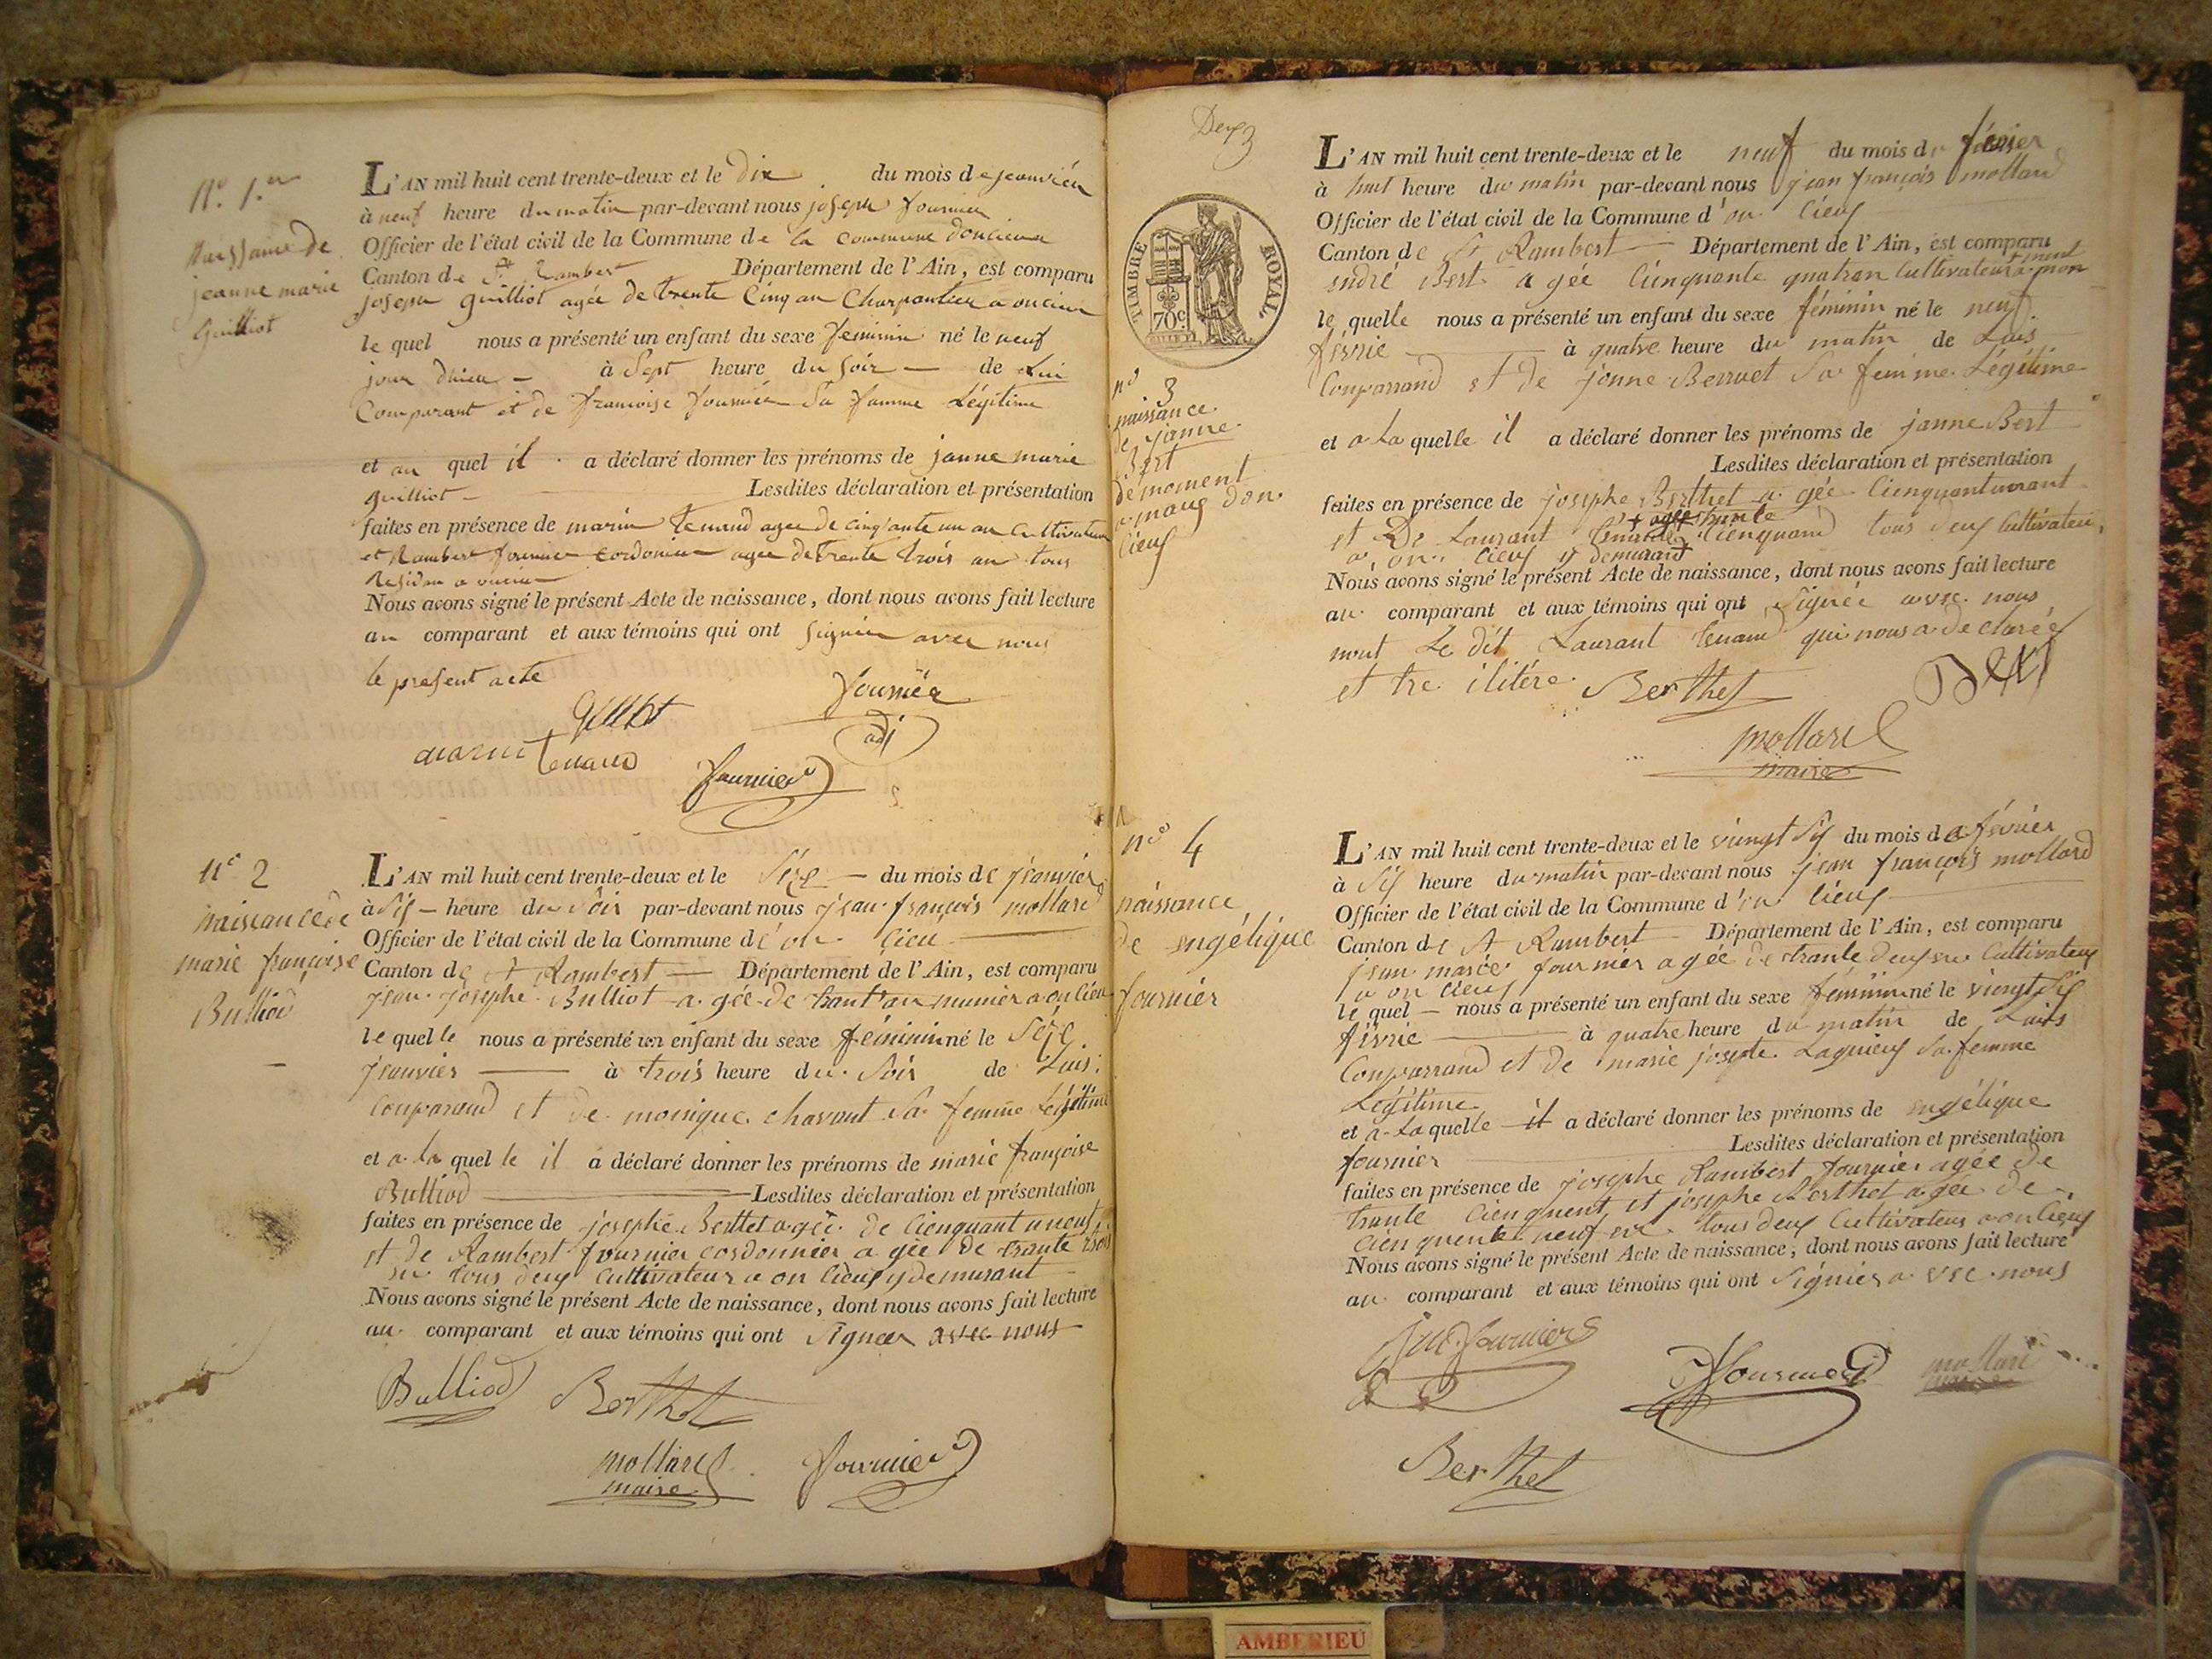 N.º 1.er
Naissance de
jeanne marie
Guilliot
L'AN mil huit cent trente-deux et le dix du mois de jeanviér
à neuf heure du matin par-devant nous joseph fournier
Officier de l'état civil de la Commune de la commune doncieux
Canton de St Rambert Département de l'Ain, est comparu
joseph guilliot agée de trente Cinq an Charpantier a oncieux
le quel nous a présenté un enfant du sexe feminin né le neuf
jour dhier — à Sept heure du soir — de Lui
Comparant et de francoise fournier Sa famme Légitime
et au quel il a déclaré donner les prénoms de janne marie
guilliot — Lesdites déclaration et présentation
faites en présence de marin tenand agee de cinq'ante un an Cultivateur
et Rambert fournier Cordonier agee de trente trois an tous
Residan a oncieu
Nous avons signé le présent Acte de naissance, dont nous avons fait lecture
au comparant et aux témoins qui ont signée avec nous
le present acte
fournier
adj
marin tenand
fournier
nº 2
naissance de
marie françoise
Bulliod
L'AN mil huit cent trente-deux et le Séze — du mois de jeanvier
à Sis — heure du Soir par-devant nous jean françois mollard
Officier de l'état civil de la Commune d'on cieu
Canton de St Rambert — Département de l'Ain, est comparu
jean josephe Bulliot a gée de trant'an munier a on cieu
le quel le nous a présenté un enfant du sexe féminin né le Séze
jeanvier — à trois heure du Soir de Luis
comparand et de monique chavant Sa femme Légitime
et a la quel le il a déclaré donner les prénoms de marie françoise
Bulliod — Lesdites déclaration et présentation
faites en présence de josephe Berthet a gée de Cienquant un
et de Rambert fournier cordonnier a gée de trante
tous deux Cultivateur a on cieux y demurant
Nous avons signé le présent Acte de naissance, dont nous avons fait lecture
au comparant et aux témoins qui ont Signeer avec nous
Bulliod Berthet
mollard fournier
maire
Deux
TIMBRE ROYAL
70c.
nº 3
naissance
de janne
Bert
demorent
don
cieux
L'AN mil huit cent trente-deux et le neuf du mois de février
à huit heure du matin par-devant nous jean françois mollard
Officier de l'état civil de la Commune d'on cieux
Canton de St Rambert — Département de l'Ain, est comparu
endré Bert a gée Cienquante quatran Cultivateur
le quelle nous a présenté un enfant du sexe féminin né le neuf
févrie — à quatre heure du matin de Luis
Comparrand et de jenne Berruet Sa femme Légitime
et a La quelle il a déclaré donner les prénoms de janne Bert
Lesdites déclaration et présentation
faites en présence de josephe Berthet a gée Cienquant
et De Laurant Tenand Cienquand tous deux Cultivateur
a on cieux y demurant
Nous avons signé le présent Acte de naissance, dont nous avons fait lecture
au comparant et aux témoins qui ont Signée avec nous
nont Le dit Laurant Tenand qui nous a déclarée
et tre ilitére
Berthet Bert
mollard
maire
nº 4
naissance
de engélique
fournier
L'AN mil huit cent trente-deux et le viengt Sis du mois de février
à Sis heure du matin par-devant nous jean françois mollard
Officier de l'état civil de la Commune d'on cieux
Canton de St Rambert — Département de l'Ain, est comparu
jean marie fournier a gée de trante deux en Cultivateur
a on cieux
le quel — nous a présenté un enfant du sexe féminin né le viengt Sis
févrie — à quatre heure du matin de Luis
Comparrand et de marie josepte Lagnieux Sa femme
Légitime
et a La quelle il a déclaré donner les prénoms de engélique
fournier — Lesdites déclaration et présentation
faites en présence de josephe Rambert fournier agée de
trante Cienquent et josephe Berthet a gée de
Cien quente neuf en tous deux Cultivateur a on cieux
Nous avons signé le présent Acte de naissance, dont nous avons fait lecture
au comparant et aux témoins qui ont Signier a vec nous
fournier
mollard
maire
Berthet
AMBERIEU